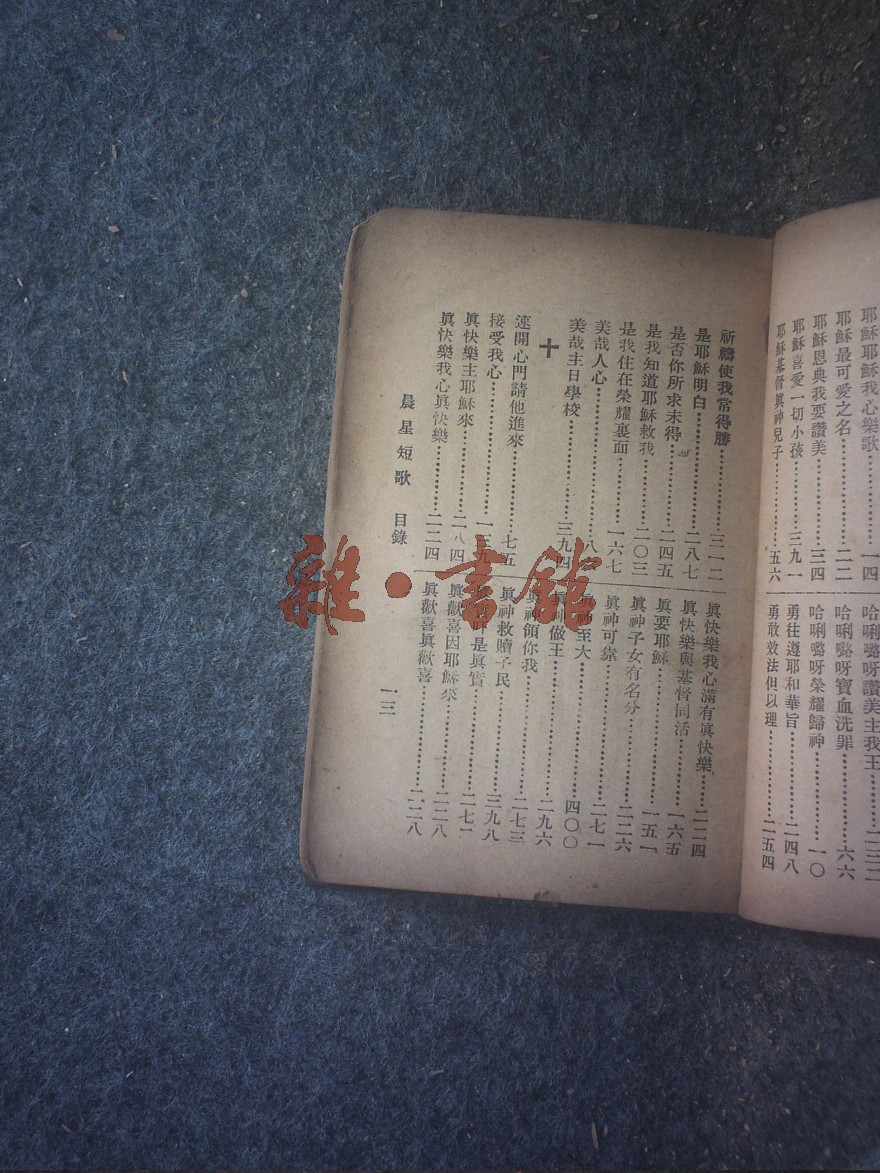 耶穌耶穌我心樂歌……一四
耶穌最可愛之名……二二
耶穌恩典我要讚美……三四
耶穌喜愛一切小孩……三九一
耶穌基督眞神兒子……五六
哈唎璐呀讚美主我王……二三三
哈唎璐呀寶血洗罪……六六
哈唎璐呀榮耀歸神……一〇
勇往遵耶和華旨……二四八
勇敢效法但以理……二五四
祈禱使我常得勝……三一二
是耶穌明白……二八七
是否你所求未得……二四五
是我知道耶穌救我……二〇三
是我住在榮耀裏面……一六七
美哉人心……八
美哉主日學校……三九四
十
速開心門請他進來……七五
接受我心……一三九
眞快樂主耶穌來……二八四
眞快樂我心眞快樂……二二四
眞快樂我心滿有眞快樂……二二四
眞快樂與基督同活……一六五
眞要耶穌……一五一
眞神子女有名分……二二六
眞神可靠……二七一
眞神至大……四〇〇
眞神做王……二九六
眞神領你我……二七三
眞神救贖子民……三九八
是眞實……一七二
眞歡喜因耶穌來……二二八
眞歡喜眞歡喜……二二八
晨星短歌 目錄 一三
雜·書館